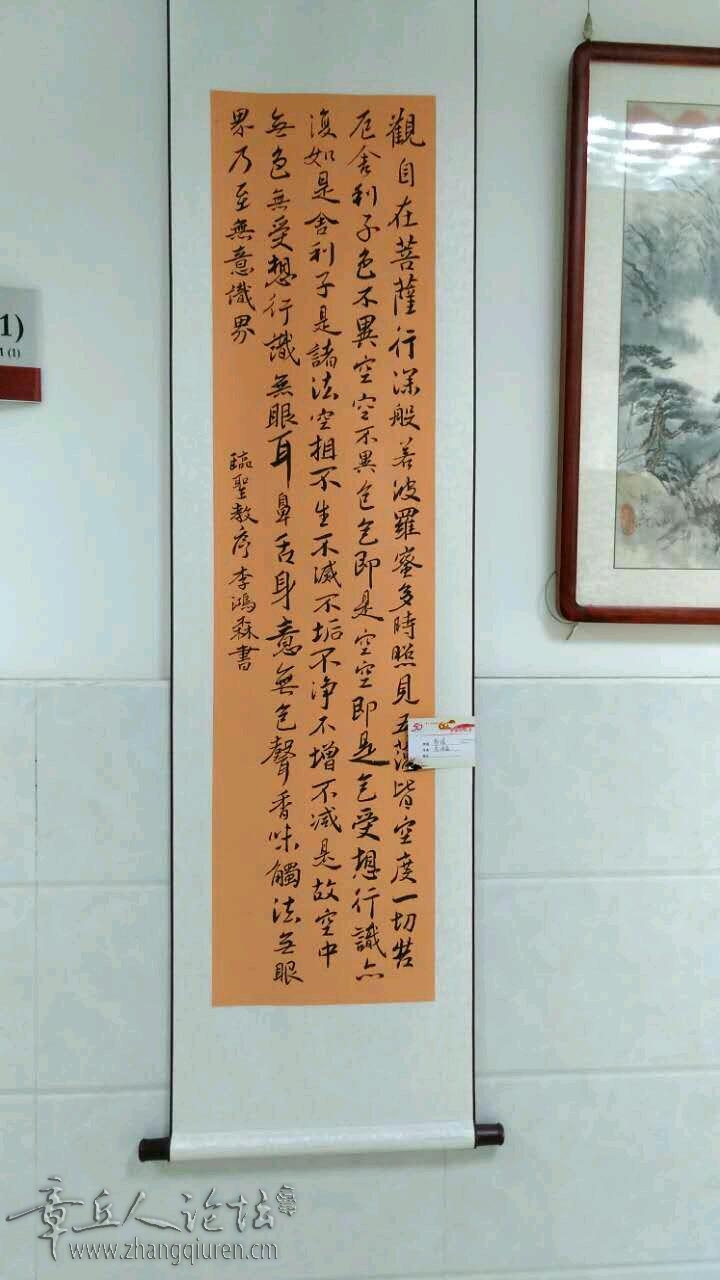 觀自在菩薩行深般若波羅蜜多時照見五蘊皆空度一切苦
厄舍利子色不異空空不異色色即是空空即是色受想行識亦
復如是舍利子是諸法空相不生不滅不垢不淨不增不減是故空中
無色無受想行識無眼耳鼻舌身意無色聲香味觸法無眼
界乃至無意識界
臨聖教序 李鴻森書
1)
(1)
50
章丘人论坛
www.zhangqiuren.cn